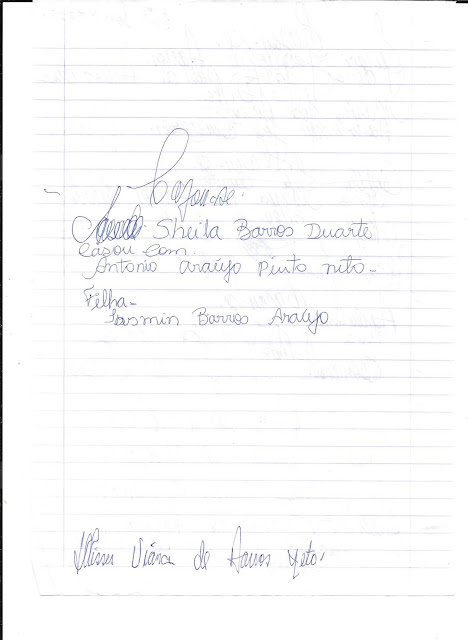 Sheila Barros Duarte
Casou com
Antonio araújo Pinto neto-
Filha-
Iasmin Barros Araújo
de Barros Neto.